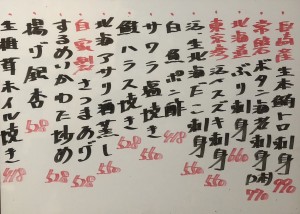 長崎産 生本鮪トロ刺身 990
常磐 ボタン海老刺身 D付 990
北海道 ぶり刺身 660
東京湾 活〆スズキ刺身 660
活生北海だこ刺身 660
白魚ポン酢 418
サワラ塩焼き 660
鮭ハラス焼き 528
北海アサリ酒蒸し 660
自家製 さつまあげ 528
するめいかわた炒め 528
揚げ銀杏 528
生椎茸ホイル焼き 418